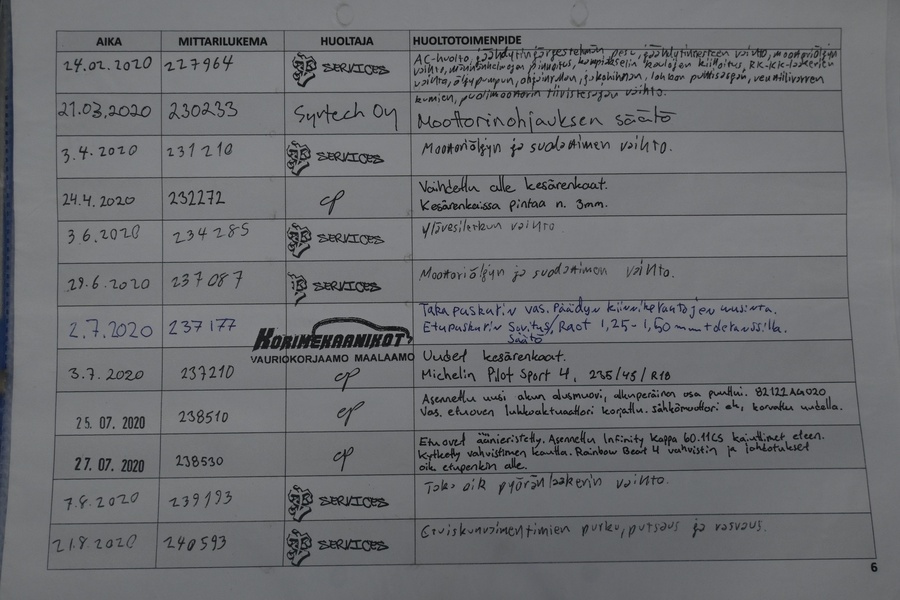 AIKA MITTARILUKEMA HUOLTAJA HUOLTOTOIMENPIDE
24.02.2020 227964 SERVICES AC-huolto, jäähdytinjärjestelmän pesu, jäähdytinnesteen vaihto, moottoriöljyn
vaihto, pinnoitus, kampiakselin kaulojen kiillotus, RK-KK-laakerien
vaihto, öljypumpun, jakohihnan,
kumien, puolimoottorin tiivistesarjan vaihto.
21.03.2020 230233 Syvtech Oy Moottorinohjauksen säätö
3.4.2020 231210 SERVICES Moottoriöljyn ja suodattimen vaihto.
24.4.2020 232272 cp Vaihdettu alle kesärenkaat.
Kesärenkaissa pintaa n. 3mm.
3.6.2020 234285 SERVICES Ylävesiletkun vaihto
29.6.2020 237087 SERVICES Moottoriöljyn ja suodattimen vaihto.
2.7.2020 237177 KORIMEKAANIKOT Takapuskurin vas. Päädyn kiinnikeruuvojen uusinta.
VAURIOKORJAAMO MAALAAMO Etupuskurin Sovitus/ Raot 1,25-1,50mm+
Säätö
3.7.2020 237210 cp Uudet kesärenkaat.
Michelin Pilot Sport 4, 235/45/R18
25. 07. 2020 238510 cp Asennettu uusi akun alusmuovi, alkuperäinen osa puuttui. 82122AG020
Vas. etuoven lukkoaktuaattori korjattu. Sähkömoottori rikki, korvattu uudella.
27. 07. 2020 238530 cp Etuovet äänieristetty. Asennettu Infinity Kappa 60.11CS kaiuttimet eteen.
Kytketty vahvistimen kautta. Rainbow Beat 4 vahvistin ja johdotukset
oik etupenkin alle.
7.8.2020 239193 SERVICES Taka oik pyöränlaakerin vaihto.
21.8.2020 240593 SERVICES purku, putsaus ja rasvaus.
6